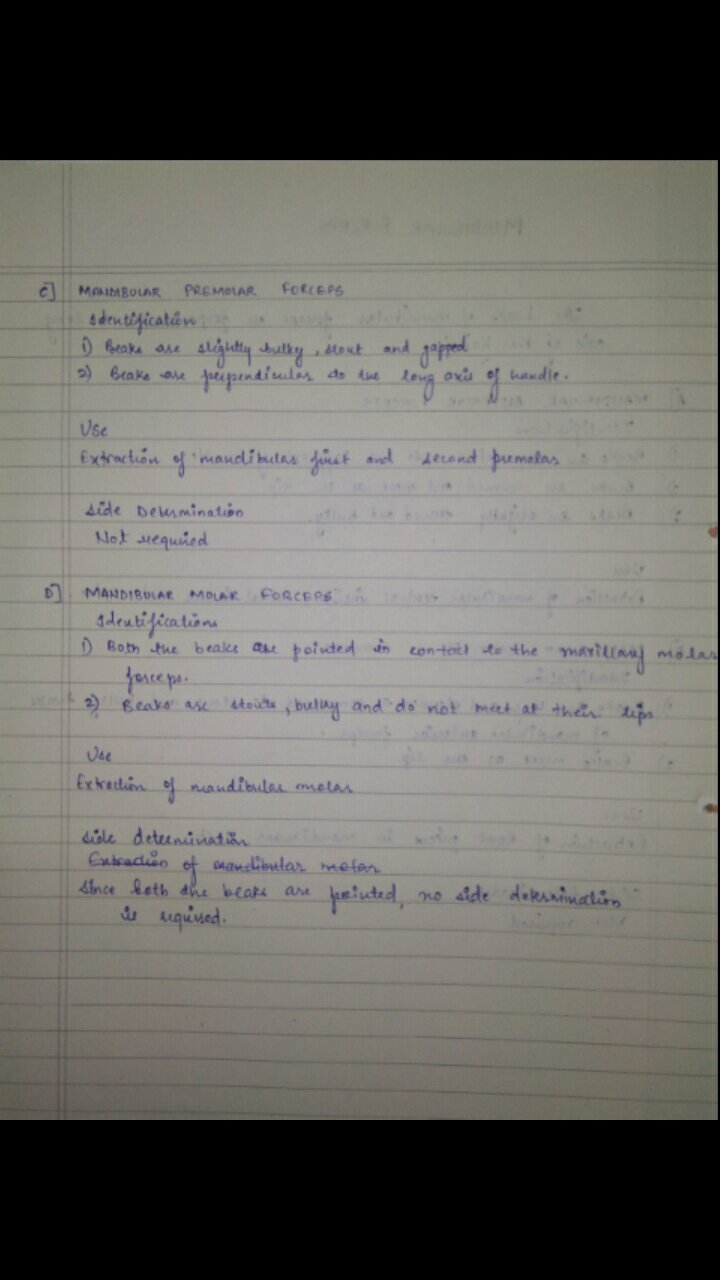 C] MANDIBULAR PREMOLAR FORCEPS
Identification
1) Beaks are slightly bulky, stout and gapped
2) Beaks are perpendicular to the long axis of handle.
Use
Extraction of mandibular first and second premolar
Side Determination
Not required
D] MANDIBULAR MOLAR FORCEPS
Identification
1) Both the beaks are pointed in contact to the maxillary molar
forceps.
2) Beaks are stout, bulky and do not meet at their tips
Use
Extraction of mandibular molar
Side determination
Extraction of mandibular molar
Since both the beaks are pointed, no side determination
is required.